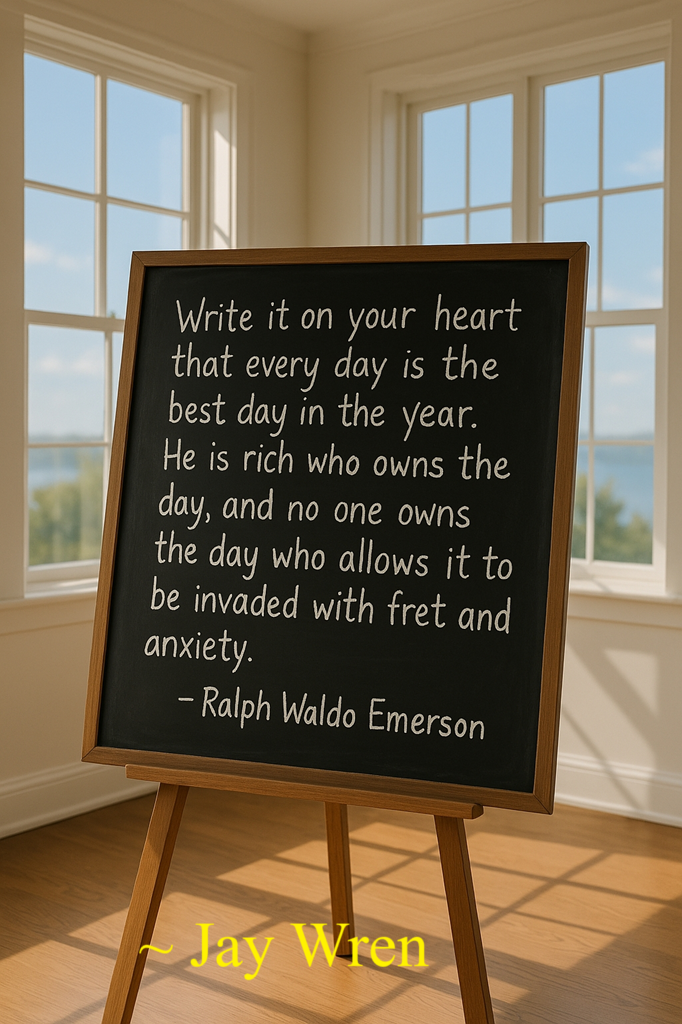 Write it on your heart
that every day is the
best day in the year.
He is rich who owns the
day, and no one owns
the day who allows it to
be invaded with fret and
anxiety.
– Ralph Waldo Emerson
~ Jay Wren